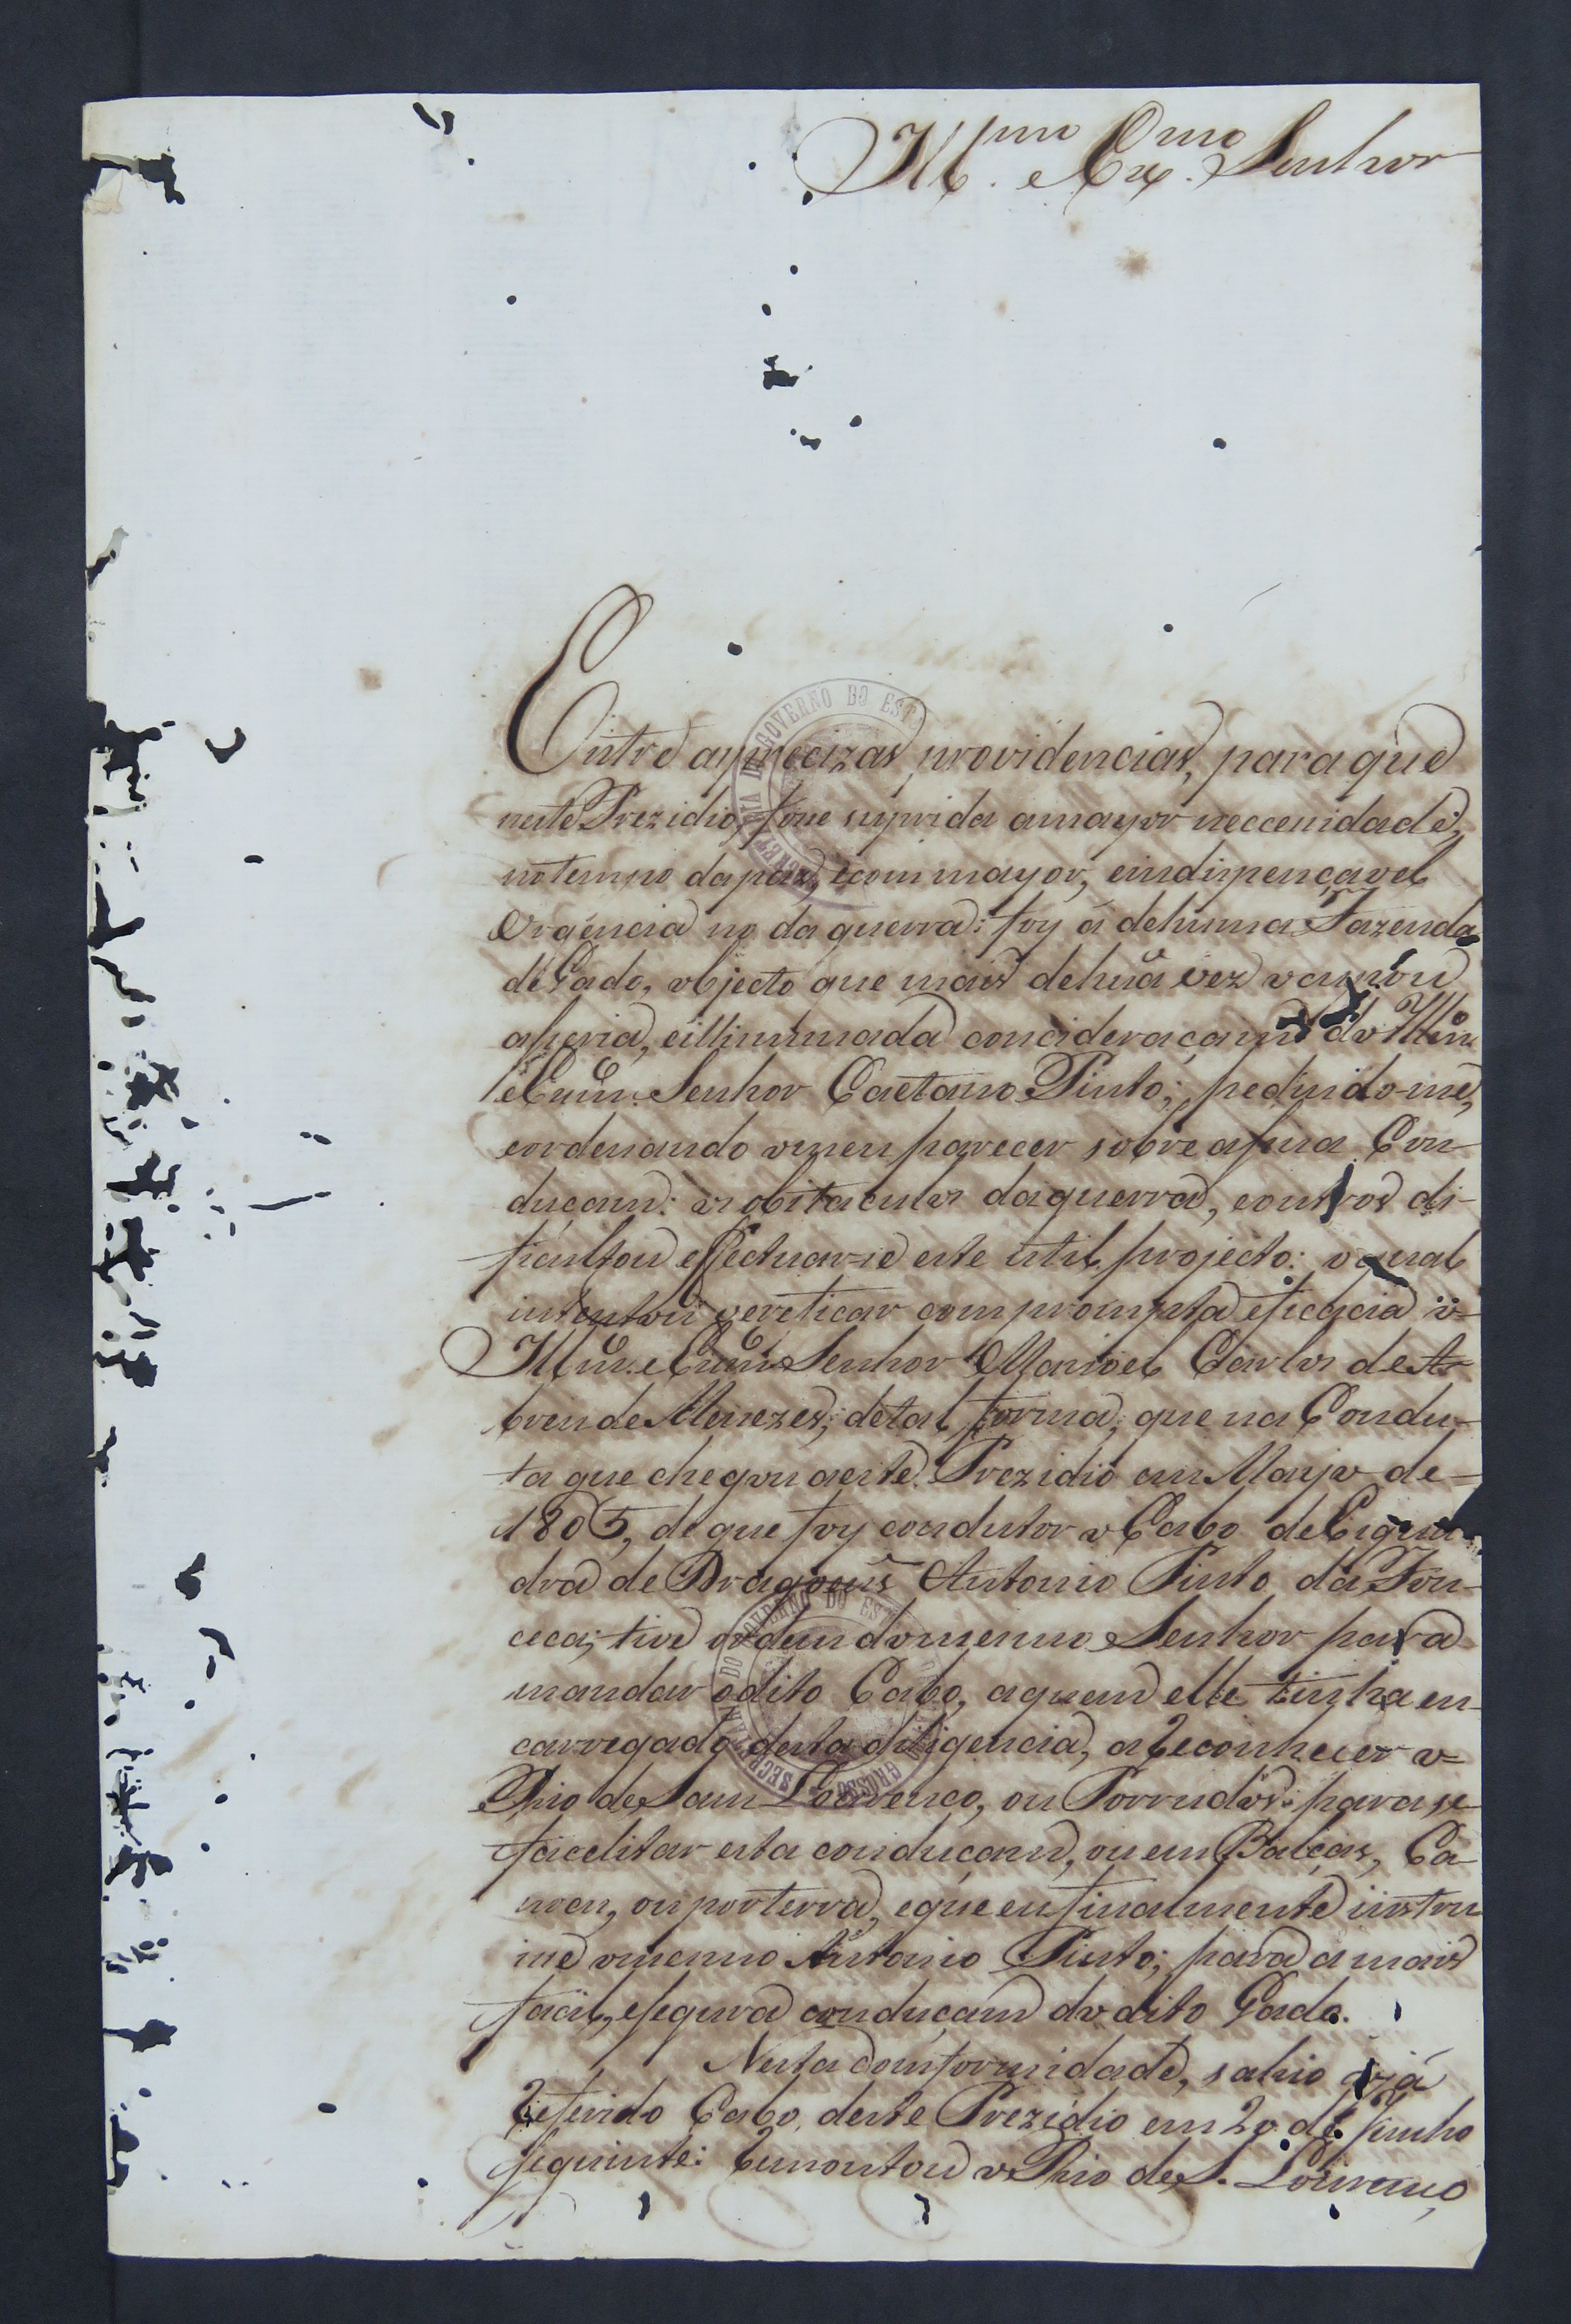 Ill.mo e Ex.mo Senhor
Entre as precizas providencias, para que
neste Prezidio fose suprida a mayor neccesidade,
no tempo da paz, e com mayor, e indispençavel
Urgencia no da guerra: foy á de huma Fazenda
de Gado, objecto que mais de hũa vez ocupou
a seria, e illuminada concideraçam do Illm.
e Exm. Senhor Caetano Pinto; pedindo-me,
e ordenando o meu parecer sobre a sua Con-
duçam: os obstaculos da guerra, e outros di-
ficultou effectuar-se este util projecto: o qual
intentou vereficar com prompta eficacia o
Illm. e Exm. Senhor Manoel Carlos de A-
breu de Menezes; de tal forma, que na Condu-
ta que chegou a este Prezidio em Mayo de
1805, de que foy condutor o Cabo de Esqua-
dra de Dragoẽs Antonio Pinto da Fon-
ceca; tive ordem do mesmo Senhor para
mandar o dito Cabo, a quem elle tinha en-
carregado desta deligencia, a Reconhecer o
Rio de Sam Lourenço, ou Porrudos: para se
facelitar esta conduçam, ou em Balças, Ca-
noas, ou por terra, e que eu finalmente instru
ise o mesmo Antonio Pinto; para a mais
facil, e segura conduçam do dito Gado.
Nesta Comformidade, sahio o já
Referido Cabo, deste Prezidio em 20 de Junho
seguinte: Remontou o Rio de S. Lourenço
SECRETARIA DO GOVERNO DO ESTADO
SECRETARIA DO GOVERNO DO ESTADO GROSSO